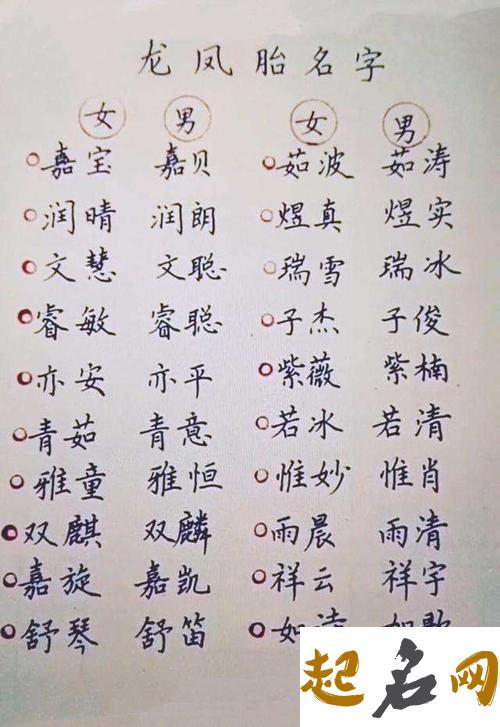 龙凤胎名字
女 男 女 男
嘉宝 嘉贝 茹波 茹涛
润晴 润朗 煜真 煜实
文慧 文聪 瑞雪 瑞冰
睿敏 睿聪 子杰 子俊
亦安 亦平 紫薇 紫楠
青茹 青意 若冰 若清
雅童 雅恒 惟妙 惟肖
双麒 双麟 雨晨 雨清
嘉旋 嘉凯 祥云 祥宇
舒琴 舒笛 如
起名网